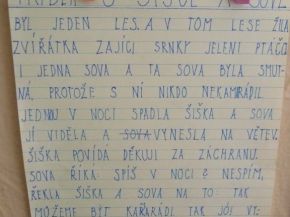 PŘÍBĚH O ŠIŠCE A SOVĚ
BYL JEDEN LES. A V TOM LESE ŽILA
ZVÍŘÁTKA ZAJÍCI SRNKY JELENI PTÁČCI
I JEDNA SOVA A TA SOVA BYLA SMUT-
NÁ, PROTOŽE S NÍ NIKDO NEKAMARÁDIL
JEDNOU V NOCI SPADLA ŠIŠKA A SOVA
JÍ VIDĚLA A SOVA VYNESLA NA VĚTEV.
ŠIŠKA POVÍDÁ DĚKUJI ZA ZÁCHRANU.
SOVA ŘÍKÁ: SPÍŠ V NOCI? NESPÍM,
ŘEKLA ŠIŠKA A SOVA NA TO: TAK
MŮŽEME BÝT KAŘARÁDI TAK JÓJ VY-